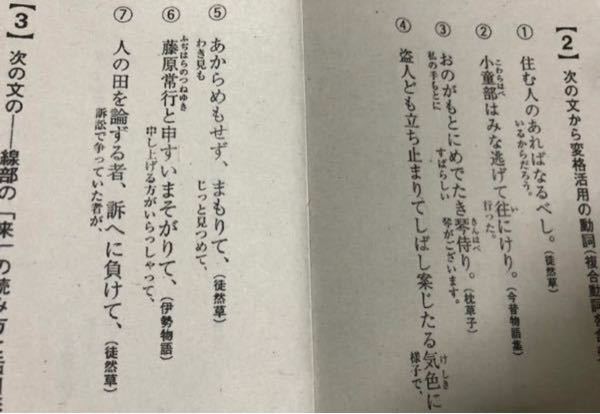 【2】 次の文から変格活用の動詞(複合動詞
① 住む人のあればなるべし。(徒然草)
いるからだろう。
② 小童部はみな逃げて往にけり。(今昔物語集)
こわらはべ
い
行った。
③ おのがもとにめでたき琴侍り。(枕草子)
私の手もとに
すばらしい
きんはべ
琴がございます。
④ 盗人ども立ち止まりてしばし案じたる気色に
けしき
様子で、
⑤ あからめもせず、まもりて、(徒然草)
わき見も
じっと見つめて、
⑥ 藤原常行と申すいまそがりて、(伊勢物語)
ふぢはらのつねゆき
申し上げる方がいらっしゃって、
⑦ 人の田を論ずる者、訴へに負けて、(徒然草)
訴訟で争っていた者が、
【3】 次の文の――線部の「来」の読み方を